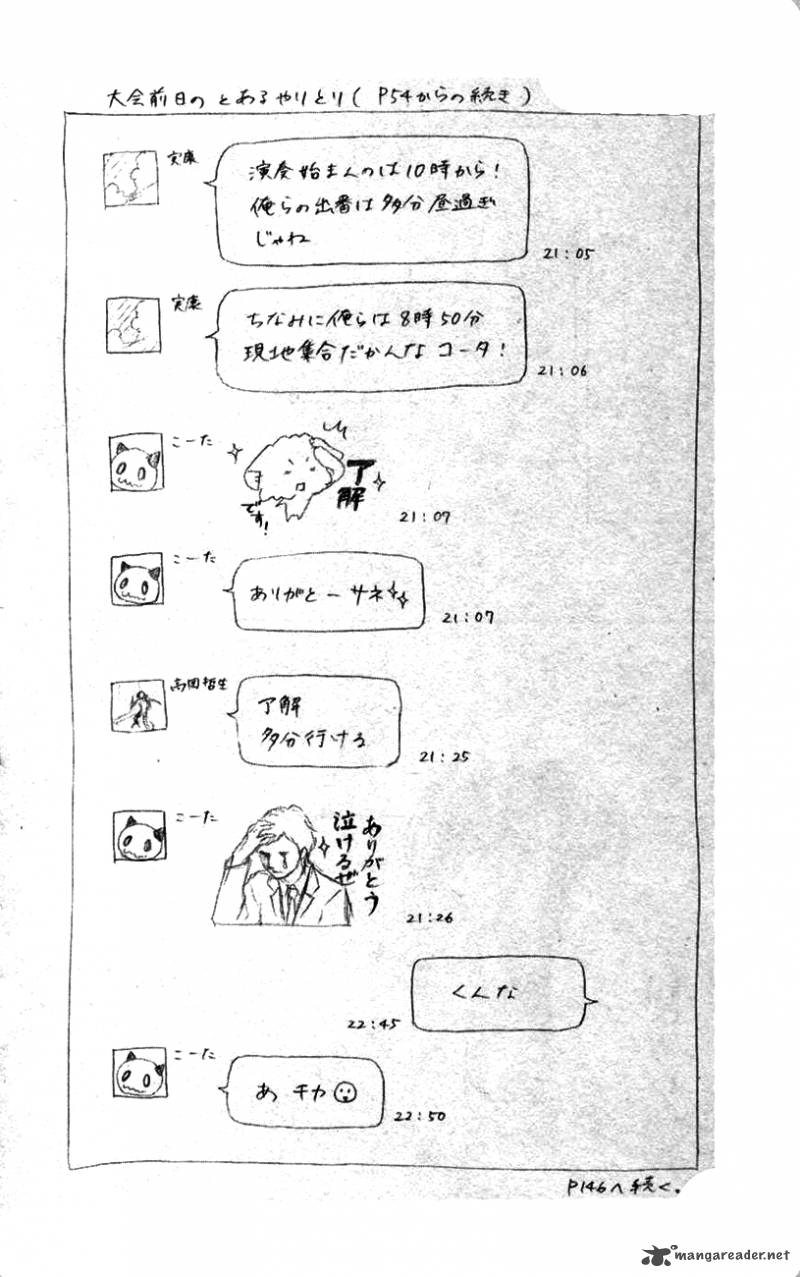 大会前日の とあるやりとり( P54からの続き)
実康
演奏始まんのは10時から!
俺らの出番は多分昼過ぎ
じゃね
21:05
実康
ちなみに俺らは8時50分
現地集合だかんな コータ!
21:06
こーた
了解
です!
21:07
こーた
ありがとー サネ
21:07
高岡哲生
了解
多分行ける
21:25
こーた
ありがとう
泣けるぜ
21:26
くんな
22:45
こーた
あ チカ
22:50
P146へ続く。
mangareader.net